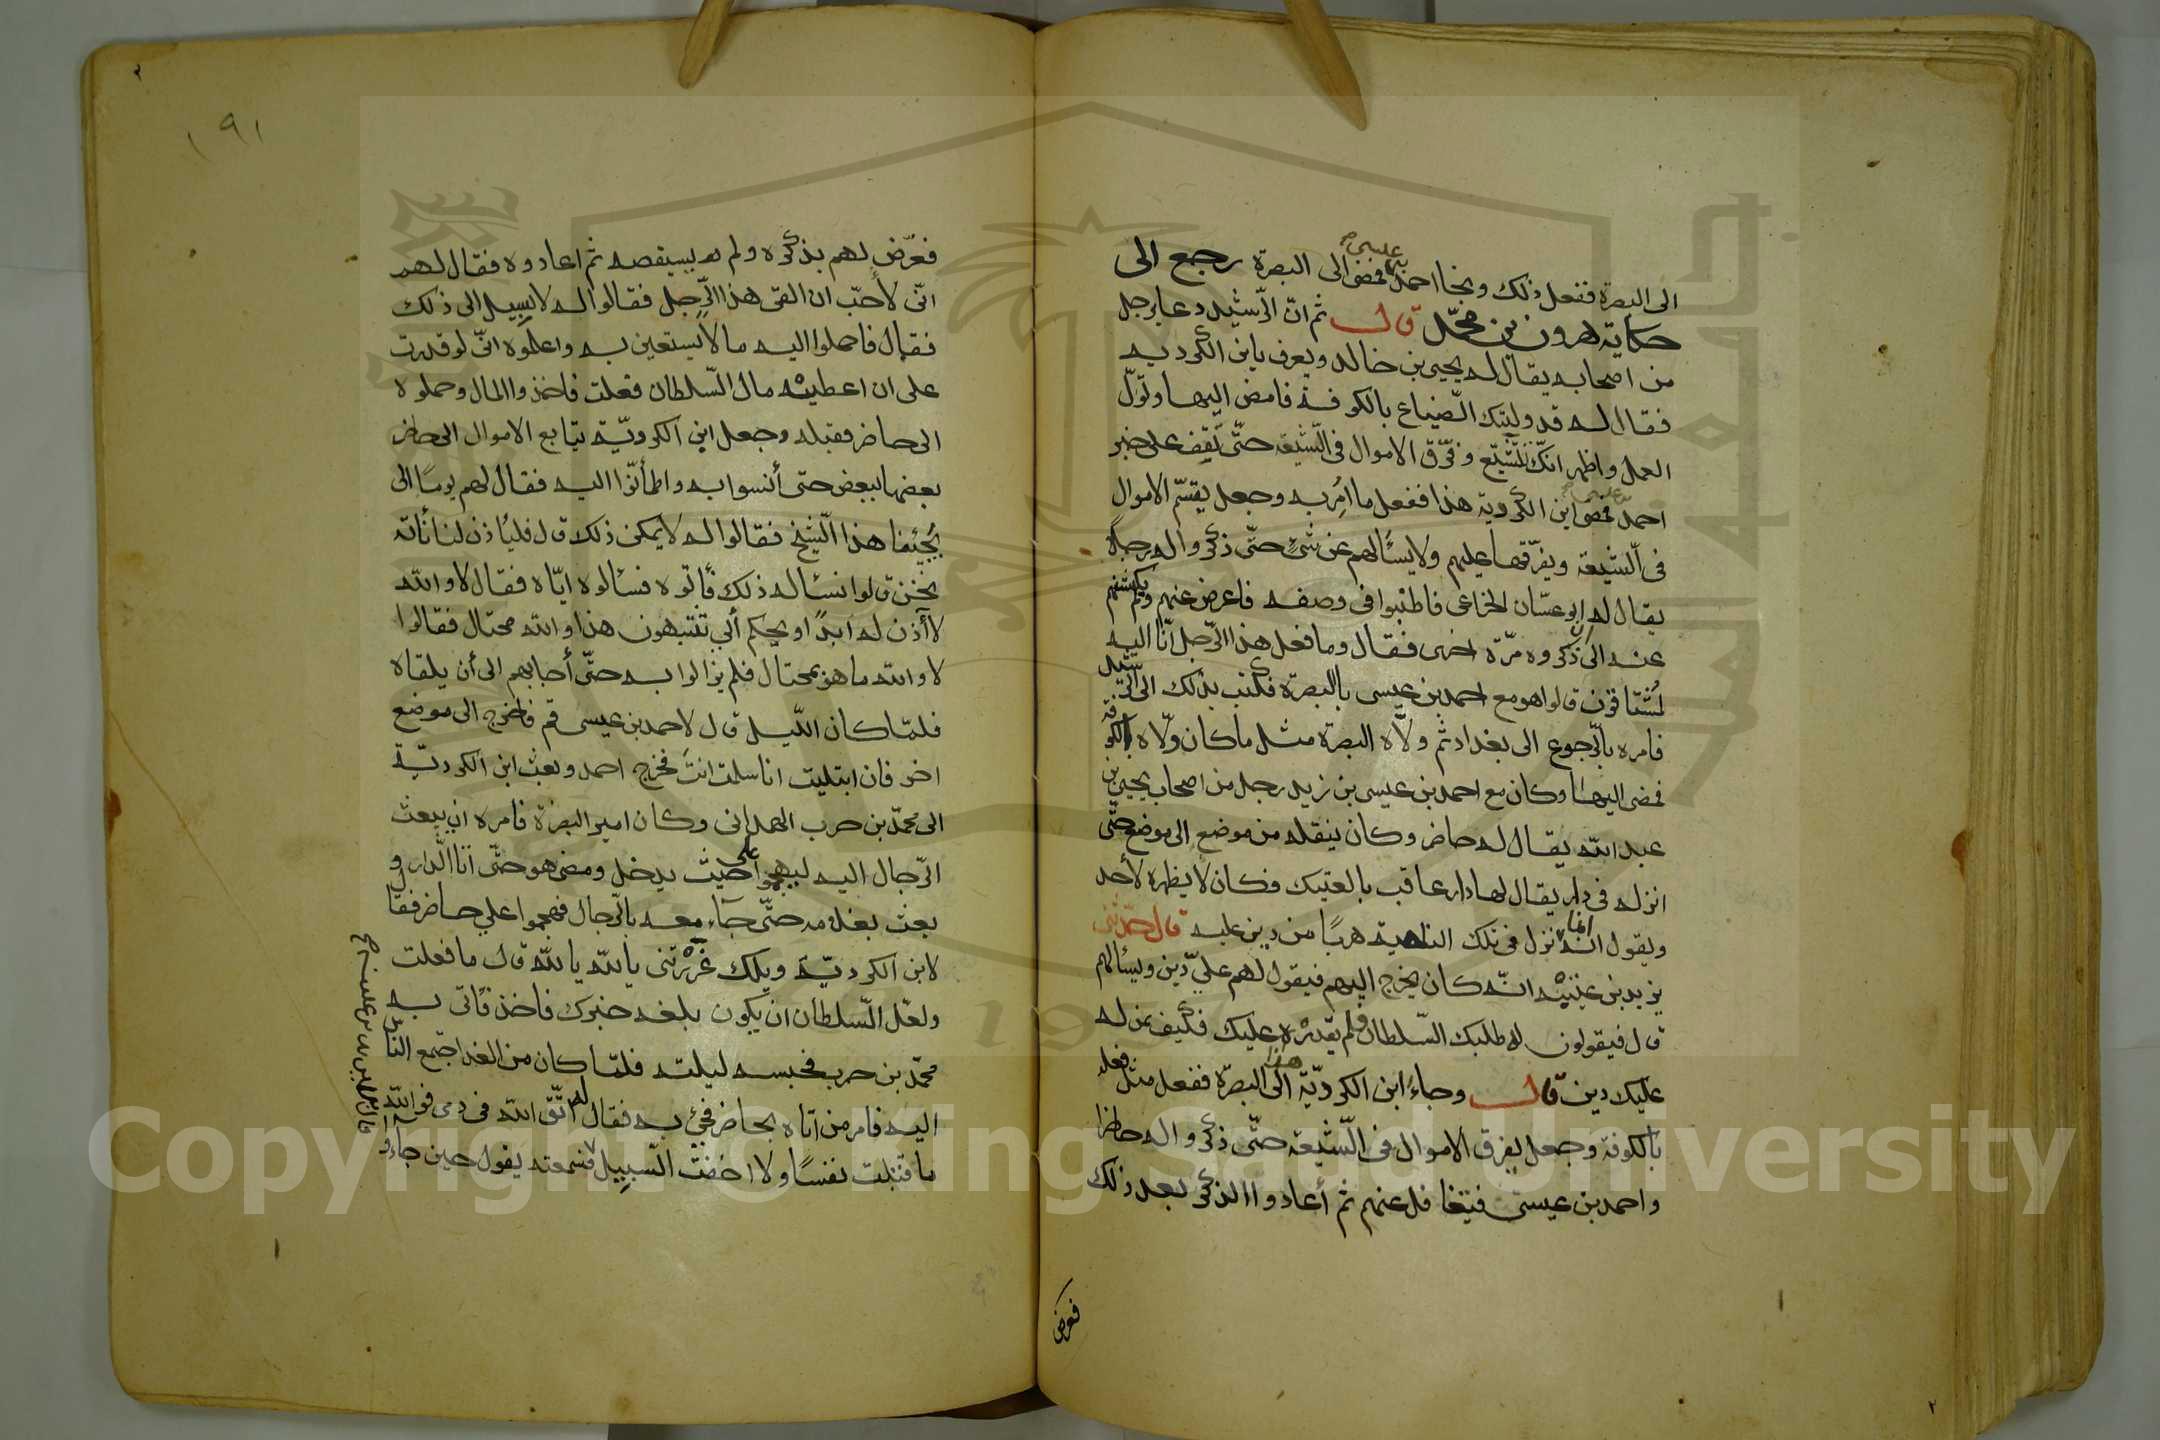 الى البصرة ففعل ذلك ونجا احمد بن عيسى فمضوا الى البصرة رجع الى
حكاية هرون بن محمّد قال ثم انّ الرّشيد دعا برجل
من اصحابه يقال له يحيى بن خالد ويعرف بابن الكردية
فقال له قد وليتك الضّياع بالكوفة فامض اليها وتولّ
العمل واظهر انّك تتشيّع وفرّق الاموال في الشّيعة حتّى تقف على خبر
احمد بن عيسى فمضى ابن الكرديّة هذا ففعل ما امر به وجعل يقسّم الاموال
في الشّيعة ويفرّقها عليهم ولا يسئالهم عن شئٍ حتّى ذكروا له رجلاً
يقال له ابو غسّان الخزاعى فاطنبوا فى وصفه فاعرض عنهم ولم يكشفهم
عنه الى ان ذكروه مرّة اخرى فقال وما فعل هذا الرّجل انّا اليه
لمشتاقون قالوا هو مع احمد بن عيسى بالبصرة فكتب بذلك الى الرّشيد
فامره بالرّجوع الى بغداد ثم ولّاه البصرة مثل ما كان ولّاه بالكوفة
فمضى اليها وكان مع احمد بن عيسى بن زيد رجل من اصحاب يحيى بن
عبد الله يقال له حاضر وكان ينقله من موضع الى موضع حتّى
انزله فى دار يقال لها دار عاقب بالعتيك فكان لا يظهره لأحد
ويقول انّه انما نزل فى تلك الناحية هربًا من دين عليه قال حدّثنى
يزيد بن عيينه انّه كان يخرج اليهم فيقول لهم عليّ دين ويسئالهم
قال فيقولون له طلبك السّلطان فلم يقدره عليك فكيف بمن له
عليك دين قال وجاء ابن الكرديّة هذا الى البصرة ففعل مثل فعله
بالكوفة وجعل يفرق الاموال فى الشّيعة حتّى ذكروا له حاضرا
واحمد بن عيسى فتغافل عنهم ثم أعادوا الذكر بعد ذلك
فعرض
١٩١
فعرّض لهم بذكره ولم يستقصه ثم اعادوه فقال لهم
انّى لأحبّ ان القى هذا الرّجل فقالوا له لا سبيل الى ذلك
فقال فاحملوا اليه مالاً يستعين به واعلموه انّى لو قدرت
على ان اعطيه مال السّلطان فعلت فاخذوا المال وحملوه
الى حاضر فقبله وجعل ابن الكرديّة يتابع الاموال الى حاضر
بعضها ببعض حتى أنسوا به واطمأنّوا اليه فقال لهم يومًا الى
يجيئنا هذا الشّيخ فقالوا له لا يمكن ذلك قال فليأذن لنا نأته
نحن قالوا نسئاله ذلك فأتوه فسئالوه ايّاه فقال لا والله
لا آذن له ابدًا ويحكم أبي تنتبهون هذا والله محتال فقالوا
لا والله ما هو بمحتال فلم يزالوا به حتّى أجابهم الى أن يلقاه
فلمّا كان اللّيل قال لاحمد بن عيسى قم فاخرج الى موضع
اخر فان ابتليت انا سلمت انت فخرج احمد وبعث ابن الكرديّة
الى محمّد بن حرب الهلالى وكان امير البصرة فامره ان يبعث
الرّجال اليه ليهجموا على حيث يدخل ومضى هو حتّى اتا الدّار و
بعث بغلامه حتّى جاء معه بالرّجال فهجموا على حاضر فقال
لابن الكرديّة ويلك غررتنى بالله يالله قال ما فعلت
ولعلّ السّلطان ان يكون بلغه خبرك فاخذ فأتى به
محمّد بن حرب فحبسه ليلته فلمّا كان من الغد اجتمع النّاس
اليه فامر من اتاه بحاضر فجئ به فقال له اتّق الله فى دمى فوالله
ما قتلت نفسًا ولا اخفت السّبيل فسمعته يقول حين جاءوا